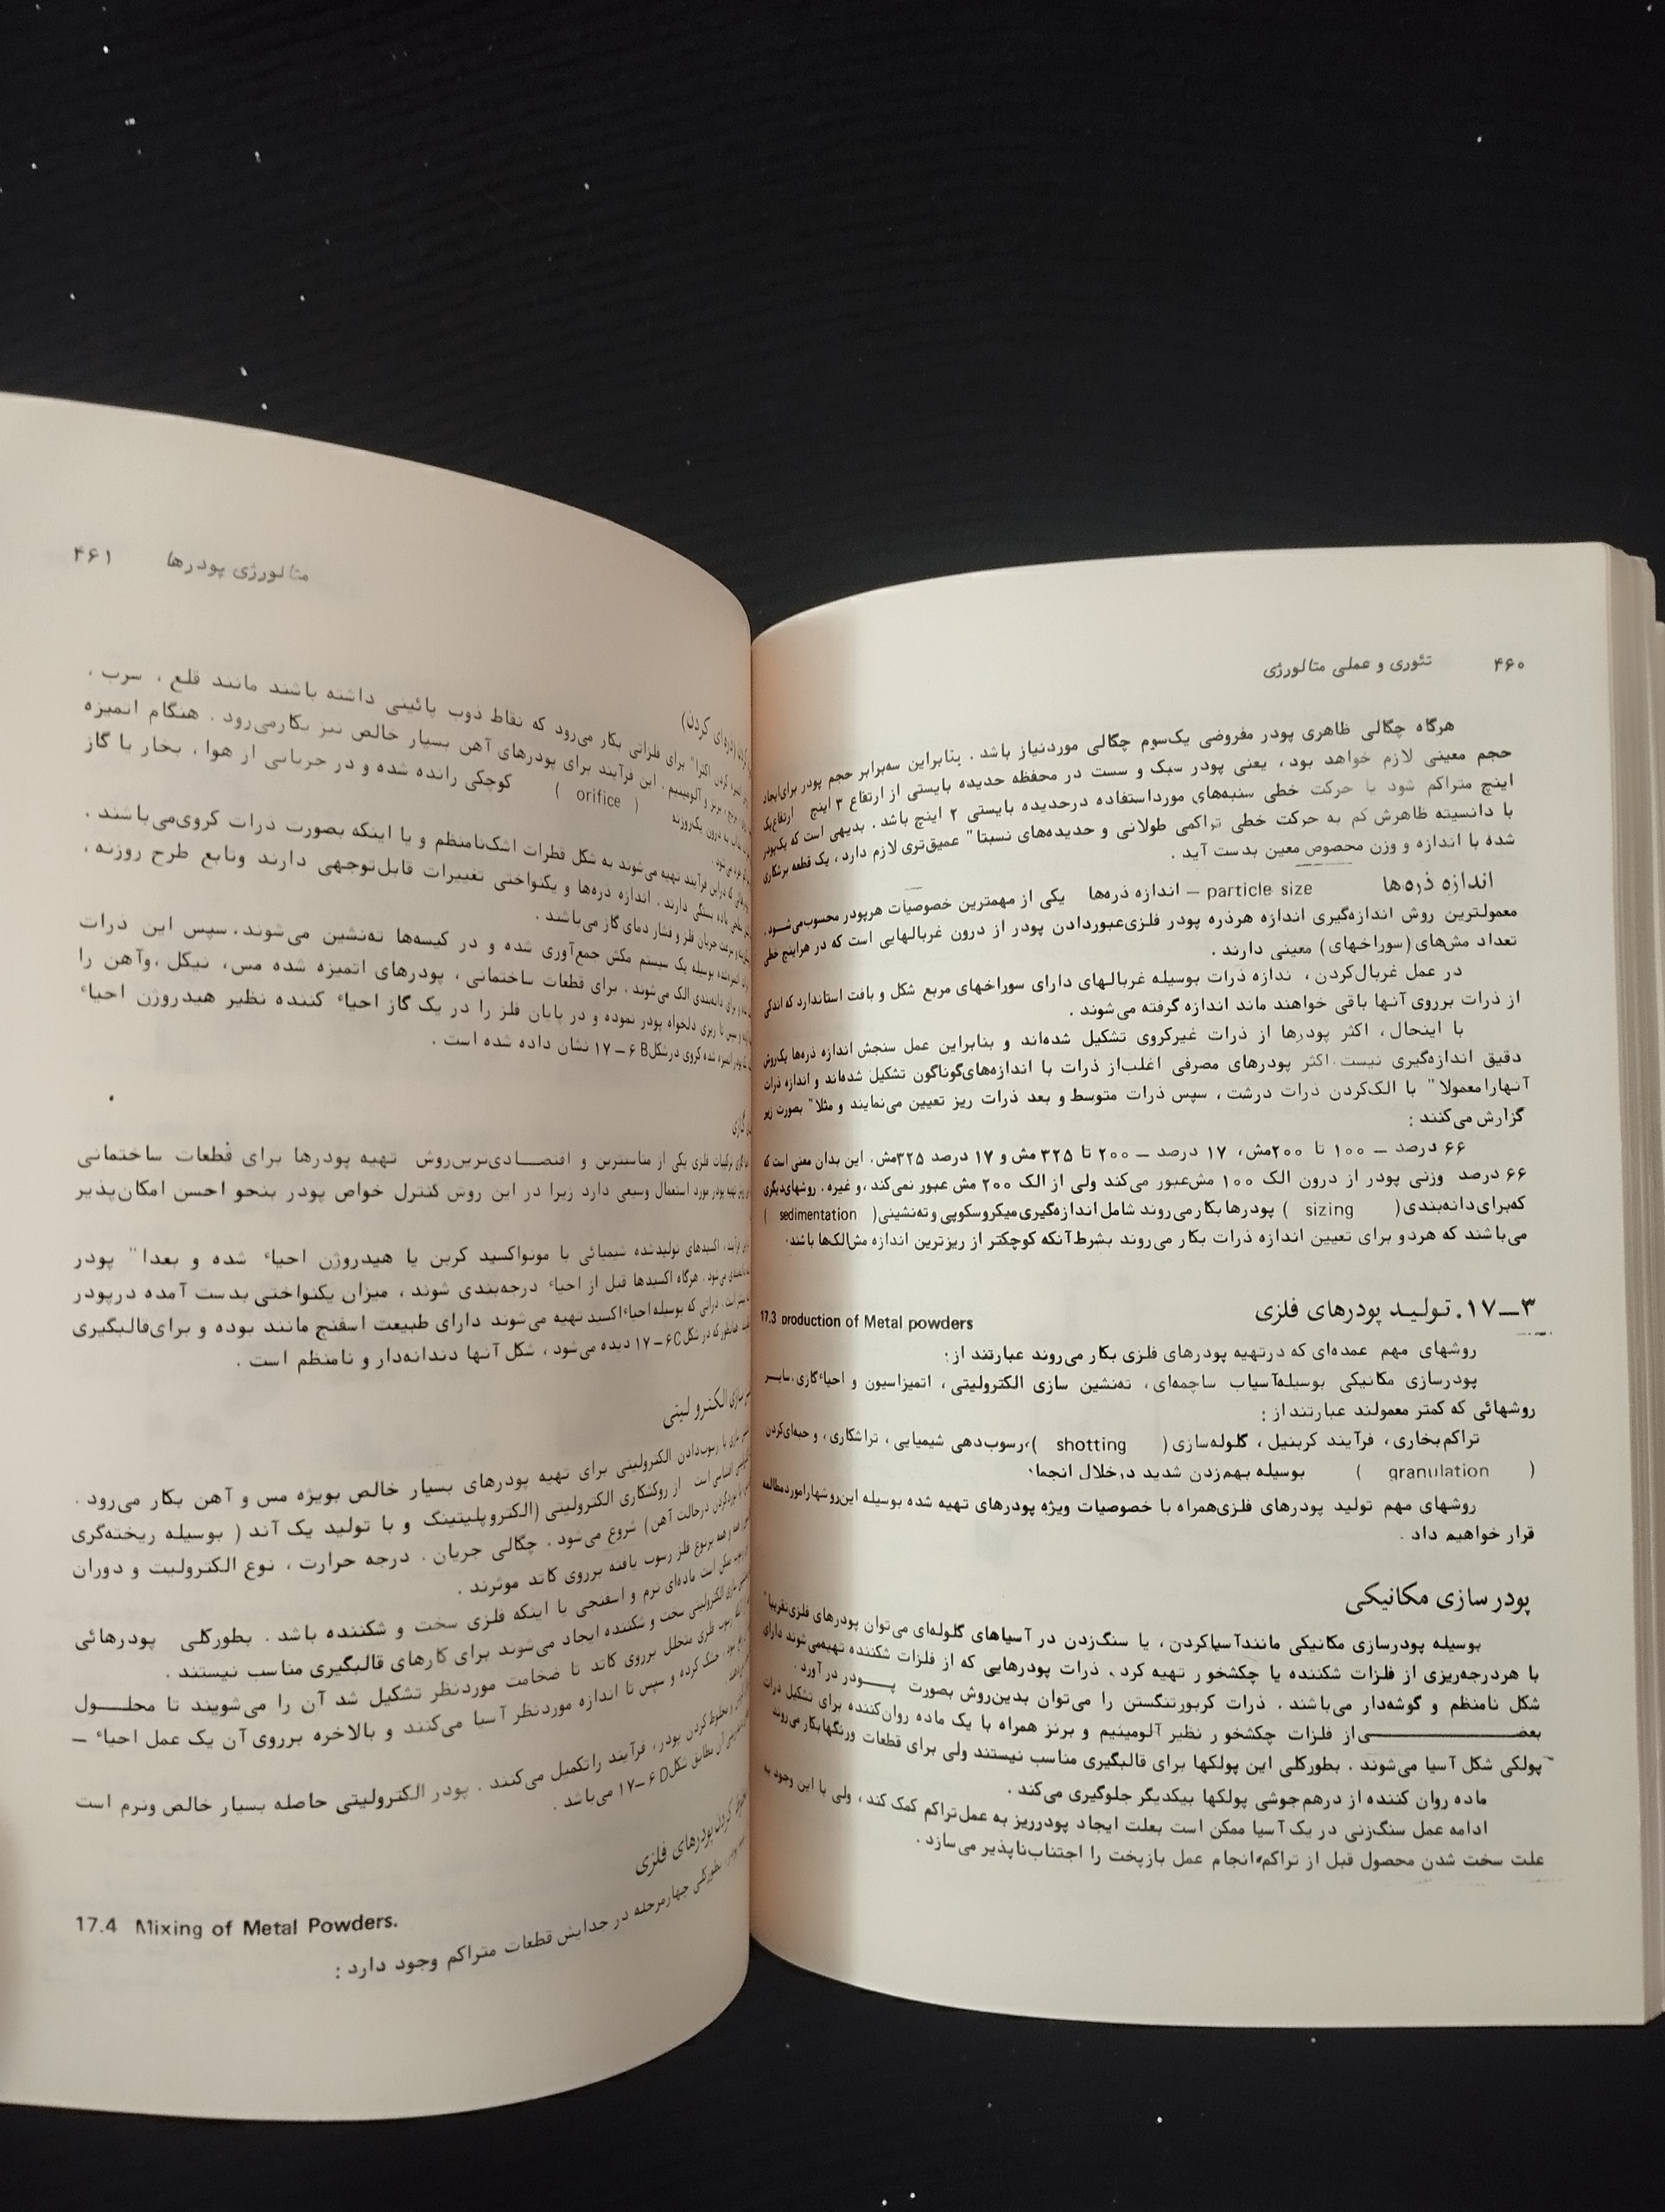 ۴۶۰ تئوری و عملی متالورژی
هرگاه چگالی ظاهری پودر مفروضی یک‌سوم چگالی موردنیاز باشد . بنابراین سه‌برابر حجم پودر برای‌ایجاد
حجم معینی لازم خواهد بود ، یعنی پودر سبک و سست در محفظه حدیده بایستی از ارتفاع ۳ اینچ ارتفاع‌یک
اینچ متراکم شود یا حرکت خطی سنبه‌های مورداستفاده درحدیده بایستی ۲ اینچ باشد . بدیهی است که یک‌پودر
با دانسیته ظاهرش کم به حرکت خطی تراکمی طولانی و حدیده‌های نسبتا" عمیق‌تری لازم دارد ، یک قطعه برشکاری
شده با اندازه و وزن محصوص معین بدست آید .
اندازه ذره‌ها particle size — اندازه ذره‌ها یکی از مهمترین خصوصیات هرپودر محسوب‌می‌شـود .
معمولترین روش اندازه‌گیری اندازه هرذره پودر فلزی‌عبوردادن پودر از درون غربالهایی است که در هراینچ خطی
تعداد مش‌های (سوراخهای) معینی دارند .
در عمل غربال‌کردن ، ندازه ذرات بوسیله غربالهای دارای سوراخهای مربع شکل و بافت استاندارد که اندکی
از ذرات برروی آنها باقی خواهند ماند اندازه گرفته می‌شوند .
با اینحال ، اکثر پودرها از ذرات غیرکروی تشکیل شده‌اند و بنابراین عمل سنجش اندازه ذره‌ها یک‌روش
دقیق اندازه‌گیری نیست. اکثر پودرهای مصرفی اغلب‌از ذرات با اندازه‌های‌گوناگون تشکیل شده‌اند و اندازه ذرات
آنهارامعمولا" با الک‌کردن ذرات درشت ، سپس ذرات متوسط و بعد ذرات ریز تعیین می‌نمایند و مثلا" بصورت زیر
گزارش می‌کنند :
۶۶ درصد — ۱۰۰ تا ۲۰۰مش، ۱۷ درصد — ۲۰۰ تا ۳۲۵ مش و ۱۷ درصد ۳۲۵مش. این بدان معنی است که
۶۶ درصد وزنی پودر از درون الک ۱۰۰ مش‌عبور می‌کند ولی از الک ۲۰۰ مش عبور نمی‌کند ،و غیره . روشهای‌دیگری
که‌برای‌دانه‌بندی( sizing ) پودرها بکارمی‌روند شامل اندازه‌گیری میکروسکوپی و ته‌نشینی( sedimentation )
می‌باشند که هردو برای تعیین اندازه ذرات بکار می‌روند بشرط‌آنکه کوچکتر از ریزترین اندازه مش‌الک‌ها باشند.
۳—۱۷. تولید پودرهای فلزی 17.3 production of Metal powders
روشهای مهم عمده‌ای که درتهیه پودرهای فلزی بکار می‌روند عبارتند از :
پودرسازی مکانیکی بوسیله‌آسیاب ساچمه‌ای، ته‌نشین سازی الکترولیتی ، اتمیزاسیون و احیاءگازی .سایــر
روشهائی که کمتر معمولند عبارتند از :
تراکم‌بخاری ، فرآیند کربنیل ، گلوله‌سازی ( shotting )،رسوب‌دهی شیمیایی ، تراشکاری ، و حبه‌ای‌کردن
( granulation ) بوسیله بهم‌زدن شدید درخلال انجماد
روشهای مهم تولید پودرهای فلزی‌همراه با خصوصیات ویژه پودرهای تهیه شده بوسیله این‌روشهارامورد‌مطالعه
قرار خواهیم داد .
پودر سازی مکانیکی
بوسیله پودرسازی مکانیکی مانندآسیاکردن ، یا سنگ‌زدن در آسیاهای گلوله‌ای می‌توان پودرهای فلزی‌تقریبا"
با هردرجه‌ریزی از فلزات شکننده یا چکشخور تهیه کرد . ذرات پودرهایی که از فلزات شکننده تهیه‌می‌شوند دارای
شکل نامنظم و گوشه‌دار می‌باشند . ذرات کربورتنگستن را می‌توان بدین‌روش بصورت پـــودر در آورد .
بعضـــــی از فلزات چکشخور نظیر آلومینیم و برنز همراه با یک ماده روان‌کننده برای تشکیل ذرات
پولکی شکل آسیا می‌شوند . بطورکلی این پولکها برای قالبگیری مناسب نیستند ولی برای قطعات ورنگها بکار می‌روند
ماده روان کننده از درهم‌جوشی پولکها بیکدیگر جلوگیری می‌کند .
ادامه عمل سنگ‌زنی در یک آسیا ممکن است بعلت ایجاد پودرریز به عمل‌تراکم کمک کند ، ولی با این وجود به
علت سخت شدن محصول قبل از تراکم،انجام عمل بازپخت را اجتناب‌ناپذیر می‌سازد .
متالورژی پودرها ۴۶۱
(دوه‌ای کردن)
کردن اکثرا" برای فلزاتی بکار می‌رود که نقاط ذوب پائینی داشته باشند مانند قلع ، سرب ،
برنز و آلومینیم . این فرآیند برای پودرهای آهن بسیار خالص نیز بکارمی‌رود . هنگام اتمیزه
به درون یک‌روزنه ( orifice ) کوچکی رانده شده و در جریانی از هوا ، بخار یا گاز
می‌شود .
که دراین فرآیند تهیه می‌شوند به شکل قطرات اشک‌نامنظم و یا اینکه بصورت ذرات کروی‌می‌باشند .
ماده بستگی دارند . اندازه ذره‌ها و یکنواختی تغییرات قابل‌توجهی دارند وتابع طرح روزنه ،
و سرعت جریان فلز و فشار دمای گاز می‌باشند .
اتمیزه‌شده بوسیله یک سیستم مکش جمع‌آوری شده و در کیسه‌ها ته‌نشین می‌شوند. سپس این ذرات
و برای دانه‌بندی الک می‌شوند . برای قطعات ساختمانی ، پودرهای اتمیزه شده مس، نیکل ،وآهن را
و سپس تا ریزی دلخواه پودر نموده و در پایان فلز را در یک گاز احیاء کننده نظیر هیدروژن احیاء
پودر اتمیزه شده کروی درشکل ۶B – ۱۷ نشان داده شده است .
گازی
ترکیبات فلزی یکی از مناسبترین و اقتصـــادی‌ترین‌روش تهیه پودرها برای قطعات ساختمانی
تهیه پودر مورد استعمال وسیعی دارد زیرا در این روش کنترل خواص پودر بنحو احسن امکان‌پذیر
فرآیند ، اکسیدهای تولیدشده شیمیائی با مونواکسید کربن یا هیدروژن احیاء شده و بعدا" پودر
می‌شود . هرگاه اکسیدها قبل از احیاء درجه‌بندی شوند ، میزان یکنواختی بدست آمده درپودر
است . ذراتی که بوسیله احیاء‌اکسید تهیه می‌شوند دارای طبیعت اسفنج مانند بوده و برای‌قالبگیری
همانطور که در شکل ۶C – ۱۷ دیده می‌شود ، شکل آنها دندانه‌دار و نامنظم است .
سازی الکترولیتی
سازی با رسوب‌دادن الکترولیتی برای تهیه پودرهای بسیار خالص بویژه مس و آهن بکار می‌رود .
اقتباسی است از روکشکاری الکترولیتی (الکتروپلیتینگ و با تولید یک آند ( بوسیله ریخته‌گری
درحالت آهن) شروع می‌شود . چگالی جریان . درجه حرارت ، نوع الکترولیت و دوران
همه برنوع فلز رسوب یافته برروی کاتد موثرند .
ممکن است ماده‌ای نرم و اسفنجی یا اینکه فلزی سخت و شکننده باشد . بطورکلی پودرهائی
سازی الکترولیتی سخت و شکننده ایجاد می‌شوند برای کارهای قالبگیری مناسب نیستند .
رسوب فلزی متخلل برروی کاتد تا ضخامت موردنظر تشکیل شد آن را می‌شویند تا محلـــول
خشک کرده و سپس تا اندازه موردنظر آسیا می‌کنند و بالاخره برروی آن یک عمل احیاء —
مخلوط کردن پودر ، فرآیند را‌تکمیل می‌کنند . پودر الکترولیتی حاصله بسیار خالص ونرم است
آن مطابق شکل ۶D – ۱۷ می‌باشد .
کردن پودرهای فلزی 17.4 Mixing of Metal Powders.
بطورکلی چهارمرحله در جدایش قطعات متراکم وجود دارد :